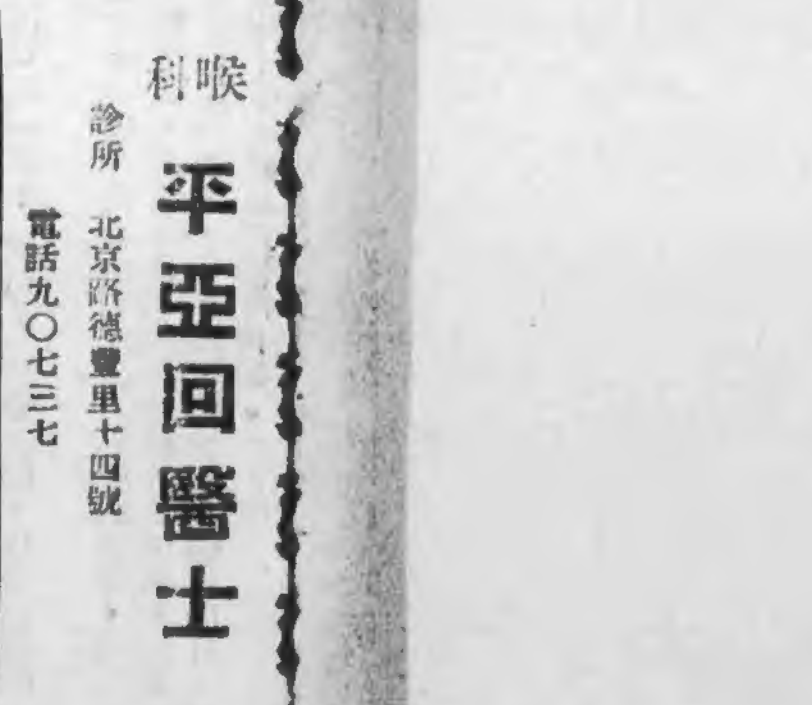 喉科
平亞回醫士
診所 北京路德豐里十四號
電話九〇七三七